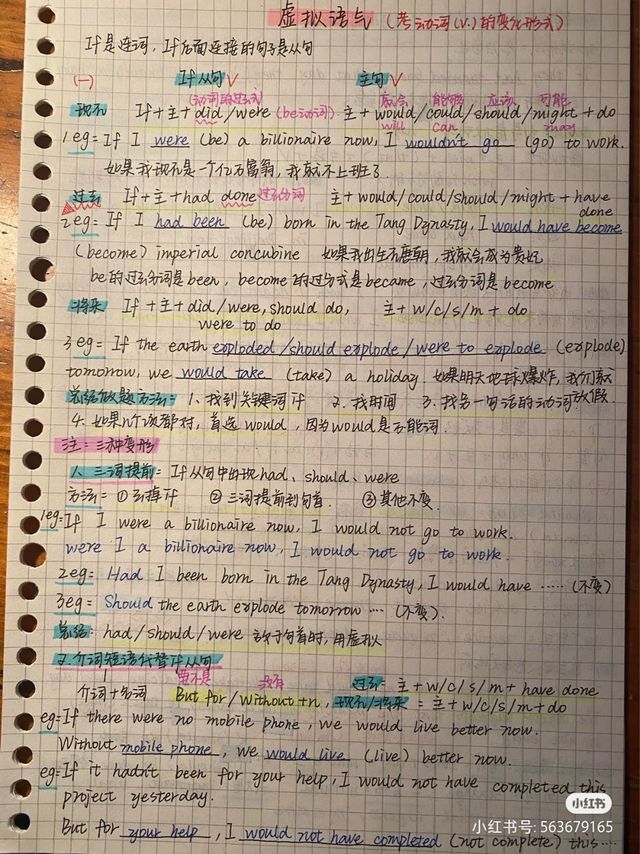 虚拟语气 (考动词(v.)的变化形式)
If是连词, If后面连接的句子是从句
(一) If从句√ 主句√
(动词的过去式) 就会 能够 应该 可能
现在 If+主+did/were (be动词) 主+would/could/should/might+do
will can may
1eg: If I were (be) a billionaire now, I wouldn't go (go) to work.
如果我现在是一个亿万富翁, 我就不上班了.
过去 If+主+had done 过去分词 主+would/could/should/might+have done
2eg: If I had been (be) born in the Tang Dynasty, I would have become
(become) imperial concubine 如果我出生在唐朝, 我就会成为贵妃
be的过去分词是been, become的过去式是became, 过去分词是become
将来 If+主+did/were, should do, 主+w/c/s/m+do
were to do
3eg: If the earth exploded/should explode/were to explode (explode)
tomorrow, we would take (take) a holiday. 如果明天地球爆炸, 我们就放假.
总结做题方法: 1. 找到关键词if 2. 找时间 3. 找另一句话的动词
4. 如果几个词都对, 首选would, 因为would是万能词.
注: 三种变形
1. 三词提前: If从句中出现had、should、were
方法: ①去掉if ②三词提前到句首. ③其他不变.
1eg: If I were a billionaire now, I would not go to work.
were I a billionaire now, I would not go to work.
2eg: Had I been born in the Tang Dynasty, I would have ...... (不变)
3eg: Should the earth explode tomorrow .... (不变).
总结: had/should/were 放于句首时, 用虚拟
2. 介词短语代替if从句
要不是 没有 过去: 主+w/c/s/m+have done
介词+名词 But for/without+n, 现在/将来: 主+w/c/s/m+do
eg: If there were no mobile phone, we would live better now.
Without mobile phone, we would live (live) better now.
eg: If it hadn't been for your help, I would not have completed this
project yesterday.
But for your help, I would not have completed (not complete) this ....
小红书
小红书号: 563679165